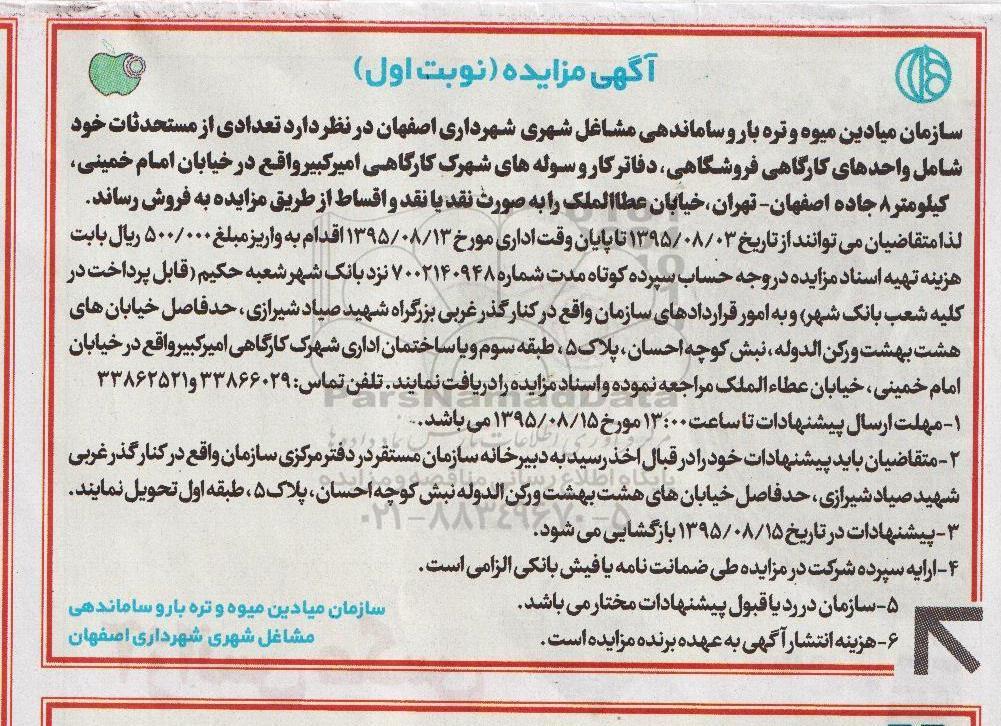 آگهی مزایده (نوبت اول)
سازمان میادین میوه و تره بار و ساماندهی مشاغل شهری شهرداری اصفهان در نظر دارد تعدادی از مستحدثات خود
شامل واحدهای کارگاهی فروشگاهی، دفاتر کار و سوله های شهرک کارگاهی امیرکبیر واقع در خیابان امام خمینی،
کیلومتر ۸ جاده اصفهان- تهران ،خیابان عطاالملک را به صورت نقد یا نقد و اقساط از طریق مزایده به فروش رساند.
لذا متقاضیان می توانند از تاریخ ۱۳۹۵/۰۸/۰۳ تا پایان وقت اداری مورخ ۱۳۹۵/۰۸/۱۳ اقدام به واریز مبلغ ۵۰۰/۰۰۰ ریال بابت
هزینه تهیه اسناد مزایده در وجه حساب سپرده کوتاه مدت شماره ۷۰۰۲۱۴۰۹۴۸ نزد بانک شهر شعبه حکیم (قابل پرداخت در
کلیه شعب بانک شهر) و به امور قراردادهای سازمان واقع در کنار گذر غربی بزرگراه شهید صیاد شیرازی، حدفاصل خیابان های
هشت بهشت و رکن الدوله، نبش کوچه احسان، پلاک ۵، طبقه سوم و یا ساختمان اداری شهرک کارگاهی امیرکبیر واقع در خیابان
امام خمینی، خیابان عطاء الملک مراجعه نموده و اسناد مزایده را دریافت نمایند. تلفن تماس: ۳۳۸۶۶۰۲۹ و ۳۳۸۶۲۵۲۱
۱-مهلت ارسال پیشنهادات تا ساعت ۱۳:۰۰ مورخ ۱۳۹۵/۰۸/۱۵ می باشد.
۲-متقاضیان باید پیشنهادات خود را در قبال اخذ رسید به دبیرخانه سازمان مستقر در دفتر مرکزی سازمان واقع در کنار گذر غربی
شهید صیاد شیرازی، حدفاصل خیابان های هشت بهشت و رکن الدوله نبش کوچه احسان، پلاک ۵، طبقه اول تحویل نمایند.
۳-پیشنهادات در تاریخ ۱۳۹۵/۰۸/۱۵ بازگشایی می شود.
۴-ارایه سپرده شرکت در مزایده طی ضمانت نامه یا فیش بانکی الزامی است.
۵-سازمان در رد یا قبول پیشنهادات مختار می باشد.
۶-هزینه انتشار آگهی به عهده برنده مزایده است.
سازمان میادین میوه و تره بار و ساماندهی
مشاغل شهری شهرداری اصفهان
ParsNamadData
پایگاه اطلاع رسانی مناقصه و مزایده
۰۲۱-۸۸۳۴۹۶۷۰-۵